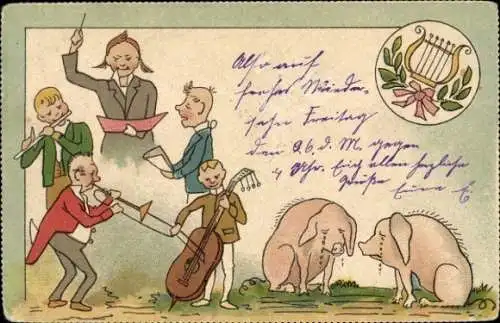 Also auf
frohes Wieder-
sehn Freitag
den 26. d. M. gegen
4 Uhr. Euch allen herzliche
Grüße Eure E